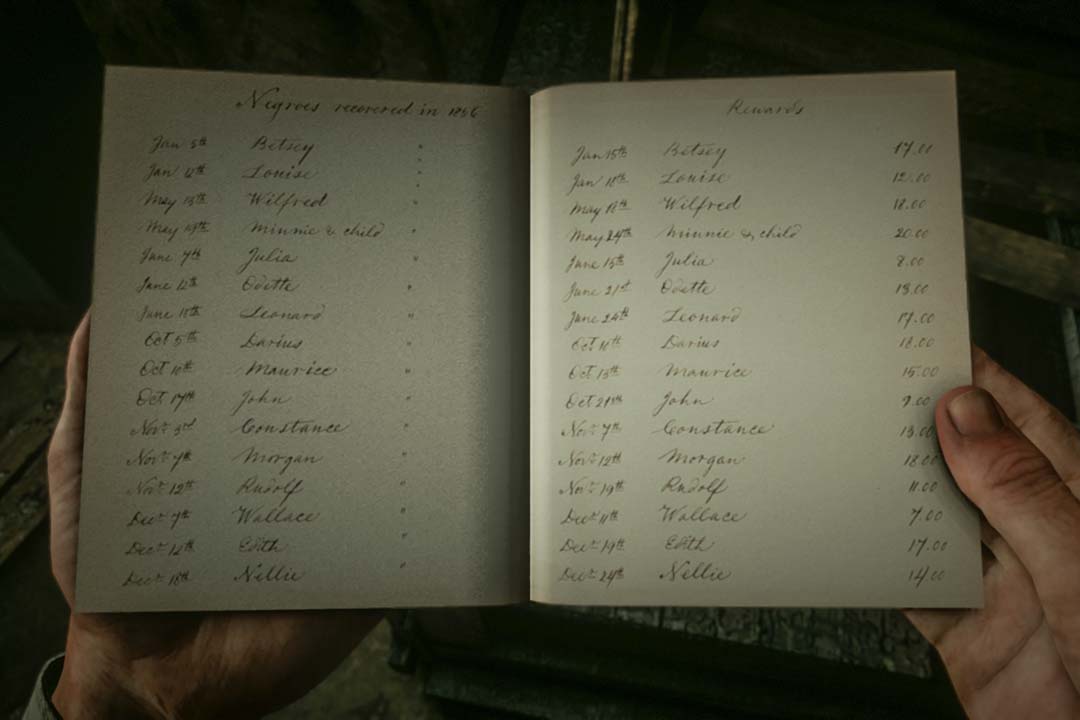 Negroes recovered in 1856
Jan 5th Betsey "
Jan 12th Louise "
May 13th Wilfred "
May 19th Minnie & child "
June 7th Julia "
June 12th Odette "
June 18th Leonard "
Oct 5th Darius "
Oct 10th Maurice "
Oct 17th John "
Nov 3rd Constance "
Nov 7th Morgan "
Nov 12th Rudolf "
Dec 7th Wallace "
Dec 12th Edith "
Dec 18th Nellie "
Rewards
Jan 15th Betsey 17.00
Jan 18th Louise 12.00
May 18th Wilfred 18.00
May 24th Minnie & child 20.00
June 15th Julia 8.00
June 21st Odette 13.00
June 24th Leonard 17.00
Oct 10th Darius 18.00
Oct 13th Maurice 15.00
Oct 21st John 9.00
Nov 7th Constance 13.00
Nov 12th Morgan 18.00
Nov 19th Rudolf 11.00
Dec 11th Wallace 7.00
Dec 19th Edith 17.00
Dec 24th Nellie 14.00